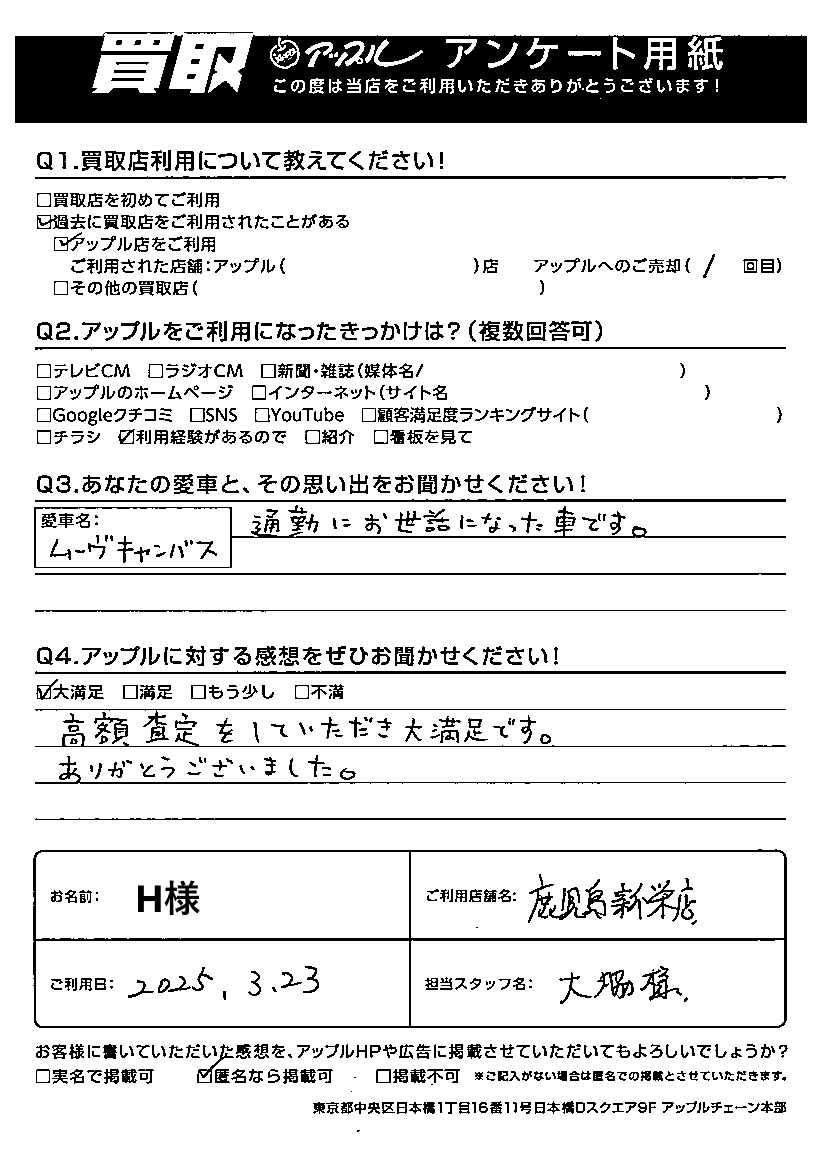 買取 アップル アンケート用紙
この度は当店をご利用いただきありがとうございます!
Q1.買取店利用について教えてください!
□買取店を初めてご利用
☑過去に買取店をご利用されたことがある
☑アップル店をご利用
ご利用された店舗:アップル( )店 アップルへのご売却( / 回目)
□その他の買取店( )
Q2.アップルをご利用になったきっかけは?(複数回答可)
□テレビCM □ラジオCM □新聞・雑誌(媒体名/ )
□アップルのホームページ □インターネット(サイト名 )
□Googleクチコミ □SNS □YouTube □顧客満足度ランキングサイト( )
□チラシ ☑利用経験があるので □紹介 □看板を見て
Q3.あなたの愛車と、その思い出をお聞かせください!
愛車名:
ムーヴキャンバス
通勤にお世話になった車です。
Q4.アップルに対する感想をぜひお聞かせください!
☑大満足 □満足 □もう少し □不満
高額査定をしていただき大満足です。
ありがとうございました。
お名前: H様 ご利用店舗名: 鹿児島新栄店
ご利用日: 2025.3.23 担当スタッフ名: 大 様
お客様に書いていただいた感想を、アップルHPや広告に掲載させていただいてもよろしいでしょうか?
□実名で掲載可 ☑匿名なら掲載可 □掲載不可 ※ご記入がない場合は匿名での掲載とさせていただきます。
東京都中央区日本橋1丁目16番11号日本橋Dスクエア9F アップルチェーン本部